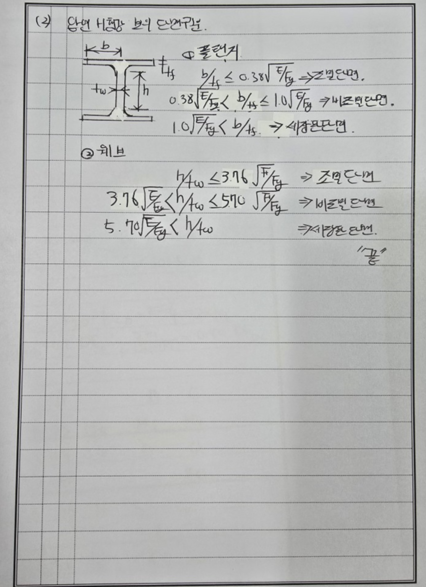 (2) 압연 H형강 보의 단면구분.
b
tf
tw
h
① 플랜지
b/tf ≤ 0.38√E/Fy ⇒ 조밀단면.
0.38√E/Fy < b/tf ≤ 1.0√E/Fy ⇒ 비조밀단면.
1.0√E/Fy < b/tf ⇒ 세장판단면.
② 웨브
h/tw ≤ 3.76 √E/Fy ⇒ 조밀단면
3.76√E/Fy < h/tw ≤ 570 √E/Fy ⇒ 비조밀단면
5.70√E/Fy < h/tw ⇒ 세장판단면.
"끝"